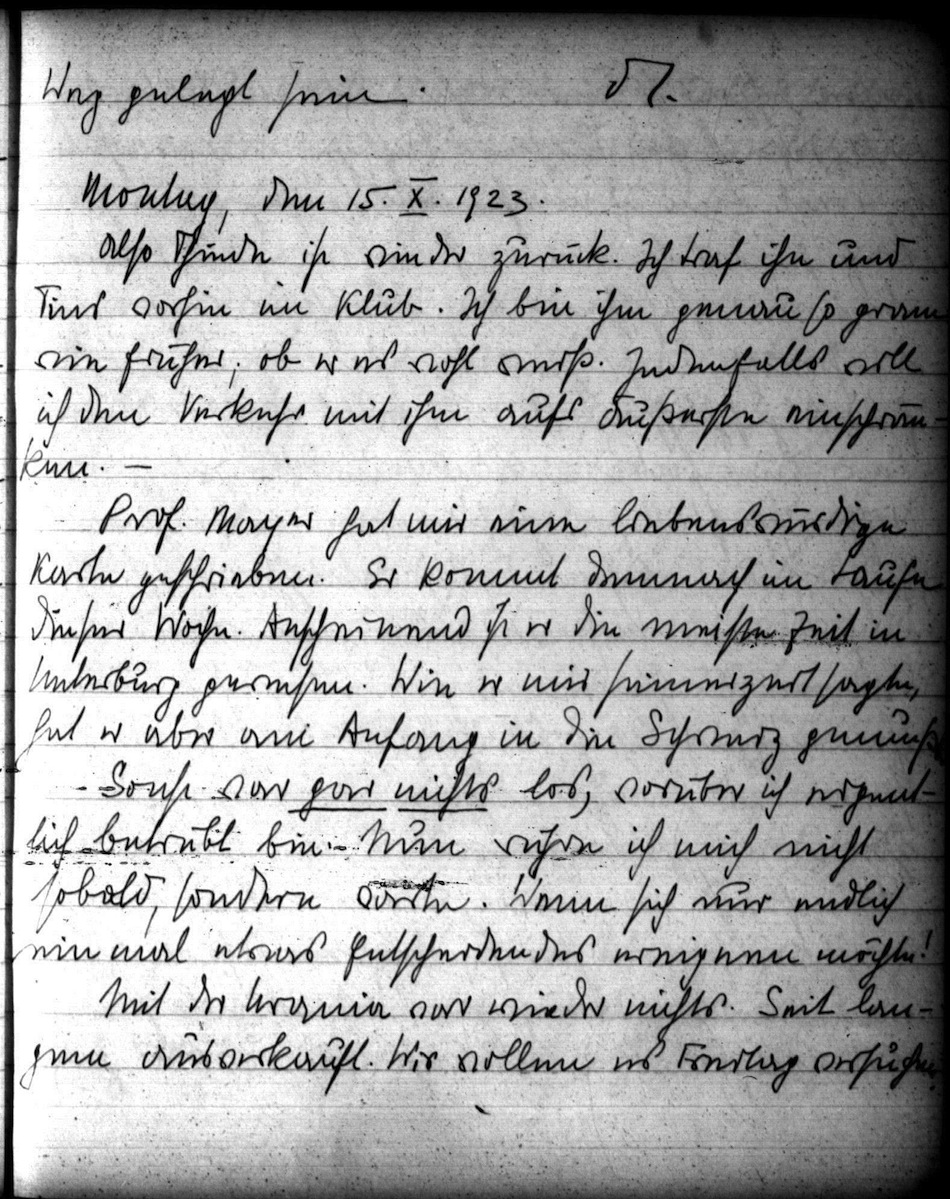 Weg gelegt sein.
Montag, den 15. X. 1923.
Also ist wieder zurück. Ich traf ihn und
vorhin im Klub. Ich bin ihm genau so gram
wie früher; ob er es wohl weiß. Jedenfalls will
ich den Verkehr mit ihm aufs Äußerste einschrän-
ken. —
Prof. Mayer hat mir eine liebenswürdige
Karte geschrieben. Er kommt demnach im Laufe
dieser Woche. Anscheinend ist er die meiste Zeit in
gewesen. Wie er mir seinerzeit sagte,
hat er aber am Anfang in die Schweiz gemußt.
- Sonst war gar nichts los, worüber ich eigent-
lich betrübt bin. - Nun rühre ich mich nicht
sobald, sondern warte. Wenn sich nur endlich
einmal etwas Entscheidendes ereignen möchte!
Mit der Urania war wieder nichts. Seit lan-
gem ausverkauft. Wir wollen es Freitag versuchen.